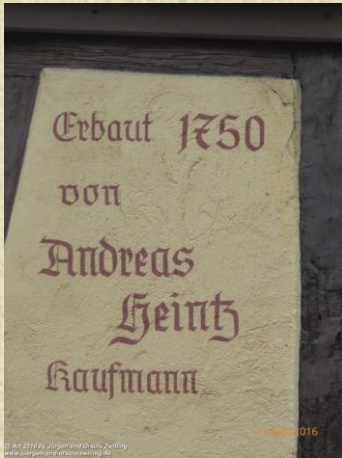 Erbaut 1750
von
Andreas
Heintz
Kaufmann
@ Art 2016 by Jürgen und Ursula Zwilling
www.juergen-und-ursula-zwilling.de
2016